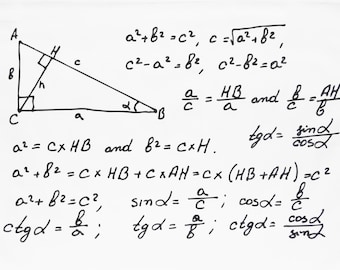 A
H
c
b
h
C
a
α
B
a²+b²=c², c=√(a²+b²),
c²-a²=b², c²-b²=a²
a/c = HB/a and b/c = AH/b
tgα = sinα/cosα
a² = c×HB and b² = c×H.
a²+b² = c×HB + c×AH = c×(HB+AH) = c²
a²+b²=c², sinα = a/c; cosα = b/c
ctgα = b/a; tgα = a/b; ctgα = cosα/sinα